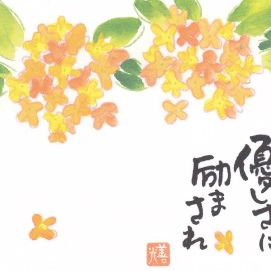 優しさに
励まされ